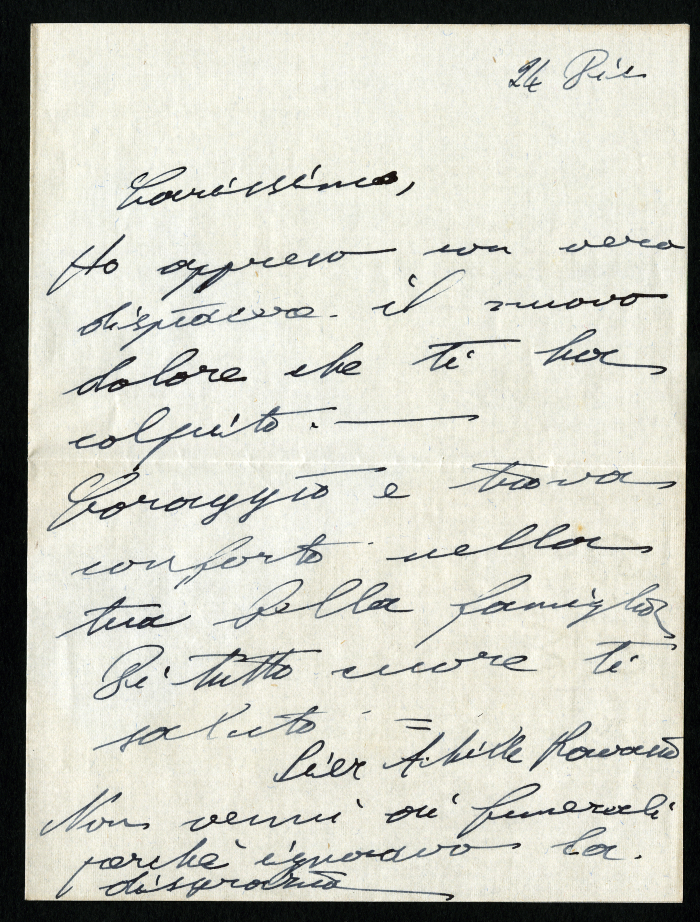 24 Dic
Carissimo,
Ho appreso con vero
dispiacere il nuovo
dolore che ti ha
colpito. —
Coraggio e trova
conforto nella
tua bella famiglia
Di tutto cuore ti
saluto =
Pier Achille
Non venni ai funerali
perchè ignoravo la
disgrazia